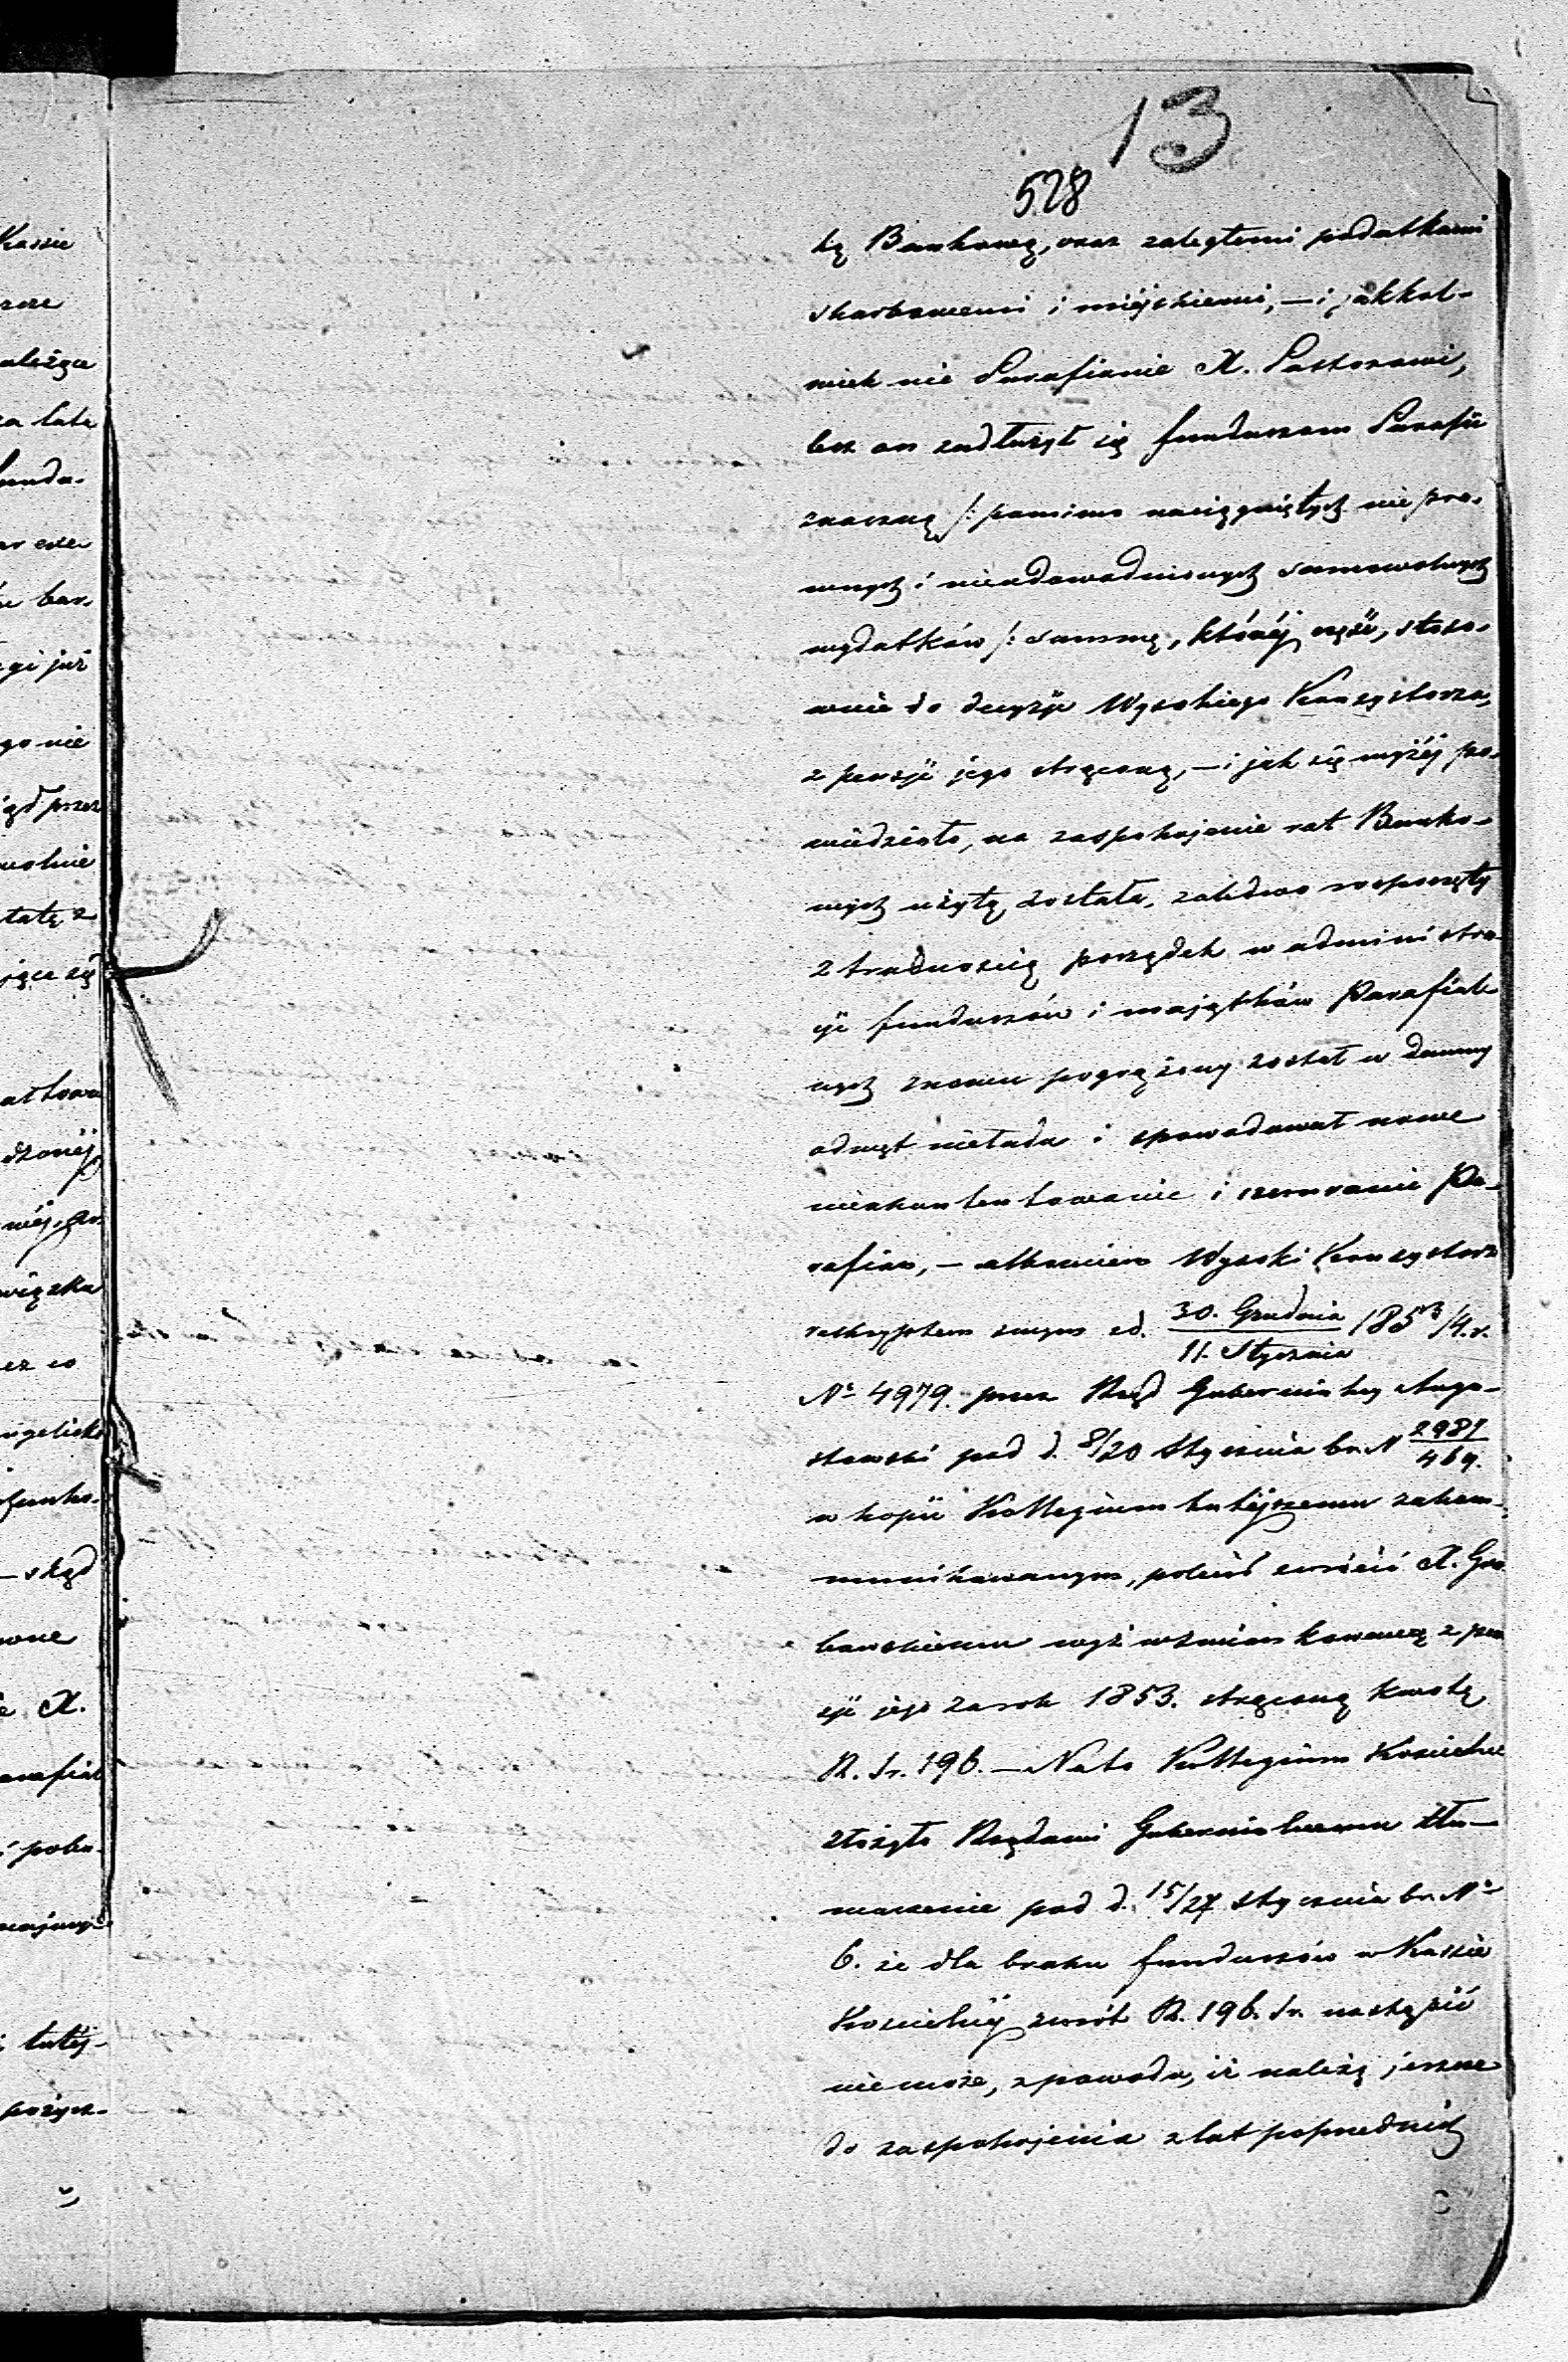 13
528
ką Bankową, oraz zaległemi podatkami
skarbowemi i miéjskiemi, — i jakkol-
wiek nie Parafianie X. Pastorowi,
lecz on zadłużył się funduszom Parafii
znaczną /: pomimo naciągniętych nie pra-
wnych i nieudowodnionych samowolnych
wydatków /: summę, któréj część, stoso-
wnie do decyzji Wysokiego Konsystorza,
z pensji jego strąconą, — i jak się wyżéj po-
wiedziało, na zaspokojenie rat Banko-
wych użytą została, zaledwo rozpoczęty
z trudnością porządek w administra-
cji funduszów i majątków Parafial-
nych znowu pogrążony został w dawny
odmęt nieładu i spowodował nowe
niekontentowanie i szemranie Pa-
rafian, — albowiem Wysoki Konsystorz
reskryptem swym od. 30. Grudnia / 11. Stycznia 1853/4. r.
Nº 4979. przez Rząd Gubernialny Augu-
stowski pod d. 8/20 Stycznia br. N 2987/469.
w kopii Kollegium tutéjszemu zakom-
munikowanym, polecił zwrócić X. Gra
bowskiemu wyż wzmiankowaną z pen
sji jego za rok 1853. strąconą kwotę
R. Sr. 196. — Na to Kollegium Kościelne
złożyło Rządowi Gubernialnemu tłu-
maczenie pod d. 15/27 Stycznia br. Nº
6. że dla braku funduszów w Kassie
Kościelnéj zwrót R. 196. Sr. nastąpić
nie może, z powodu, iż należą jeszcze
do zaspokojenia z lat poprzednich
Kassie
należące
za lata
fundu-
gi już
go nie
przez
wolnie
jące się
związku
ez co
skąd
X.
i pobo-
tutéj-
pożycz-